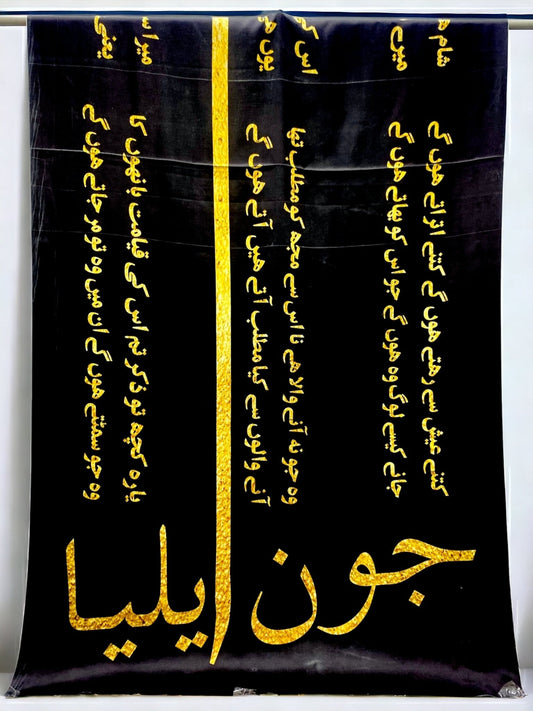 کتنے عیش سے رھتے ھوں گے کتنے اتراتے ھوں گے
جانے کیسے لوگ وہ ھوں گے جو اس کو بھاتے ھوں گے
شام
میرے
وہ جو نہ آنے والا ھے نا اس سے مجھ کو مطلب تھا
آنے والوں سے کیا مطلب آتے ھیں آتے ھوں گے
اس
یوں
یارہ کچھ تو ذکر تم اس کی قیامت بانھوں کا
وہ جو سمٹتے ھوں گے ان میں وہ تو مر جاتے ھوں گے
میرا
یعنی
جون ایلیا